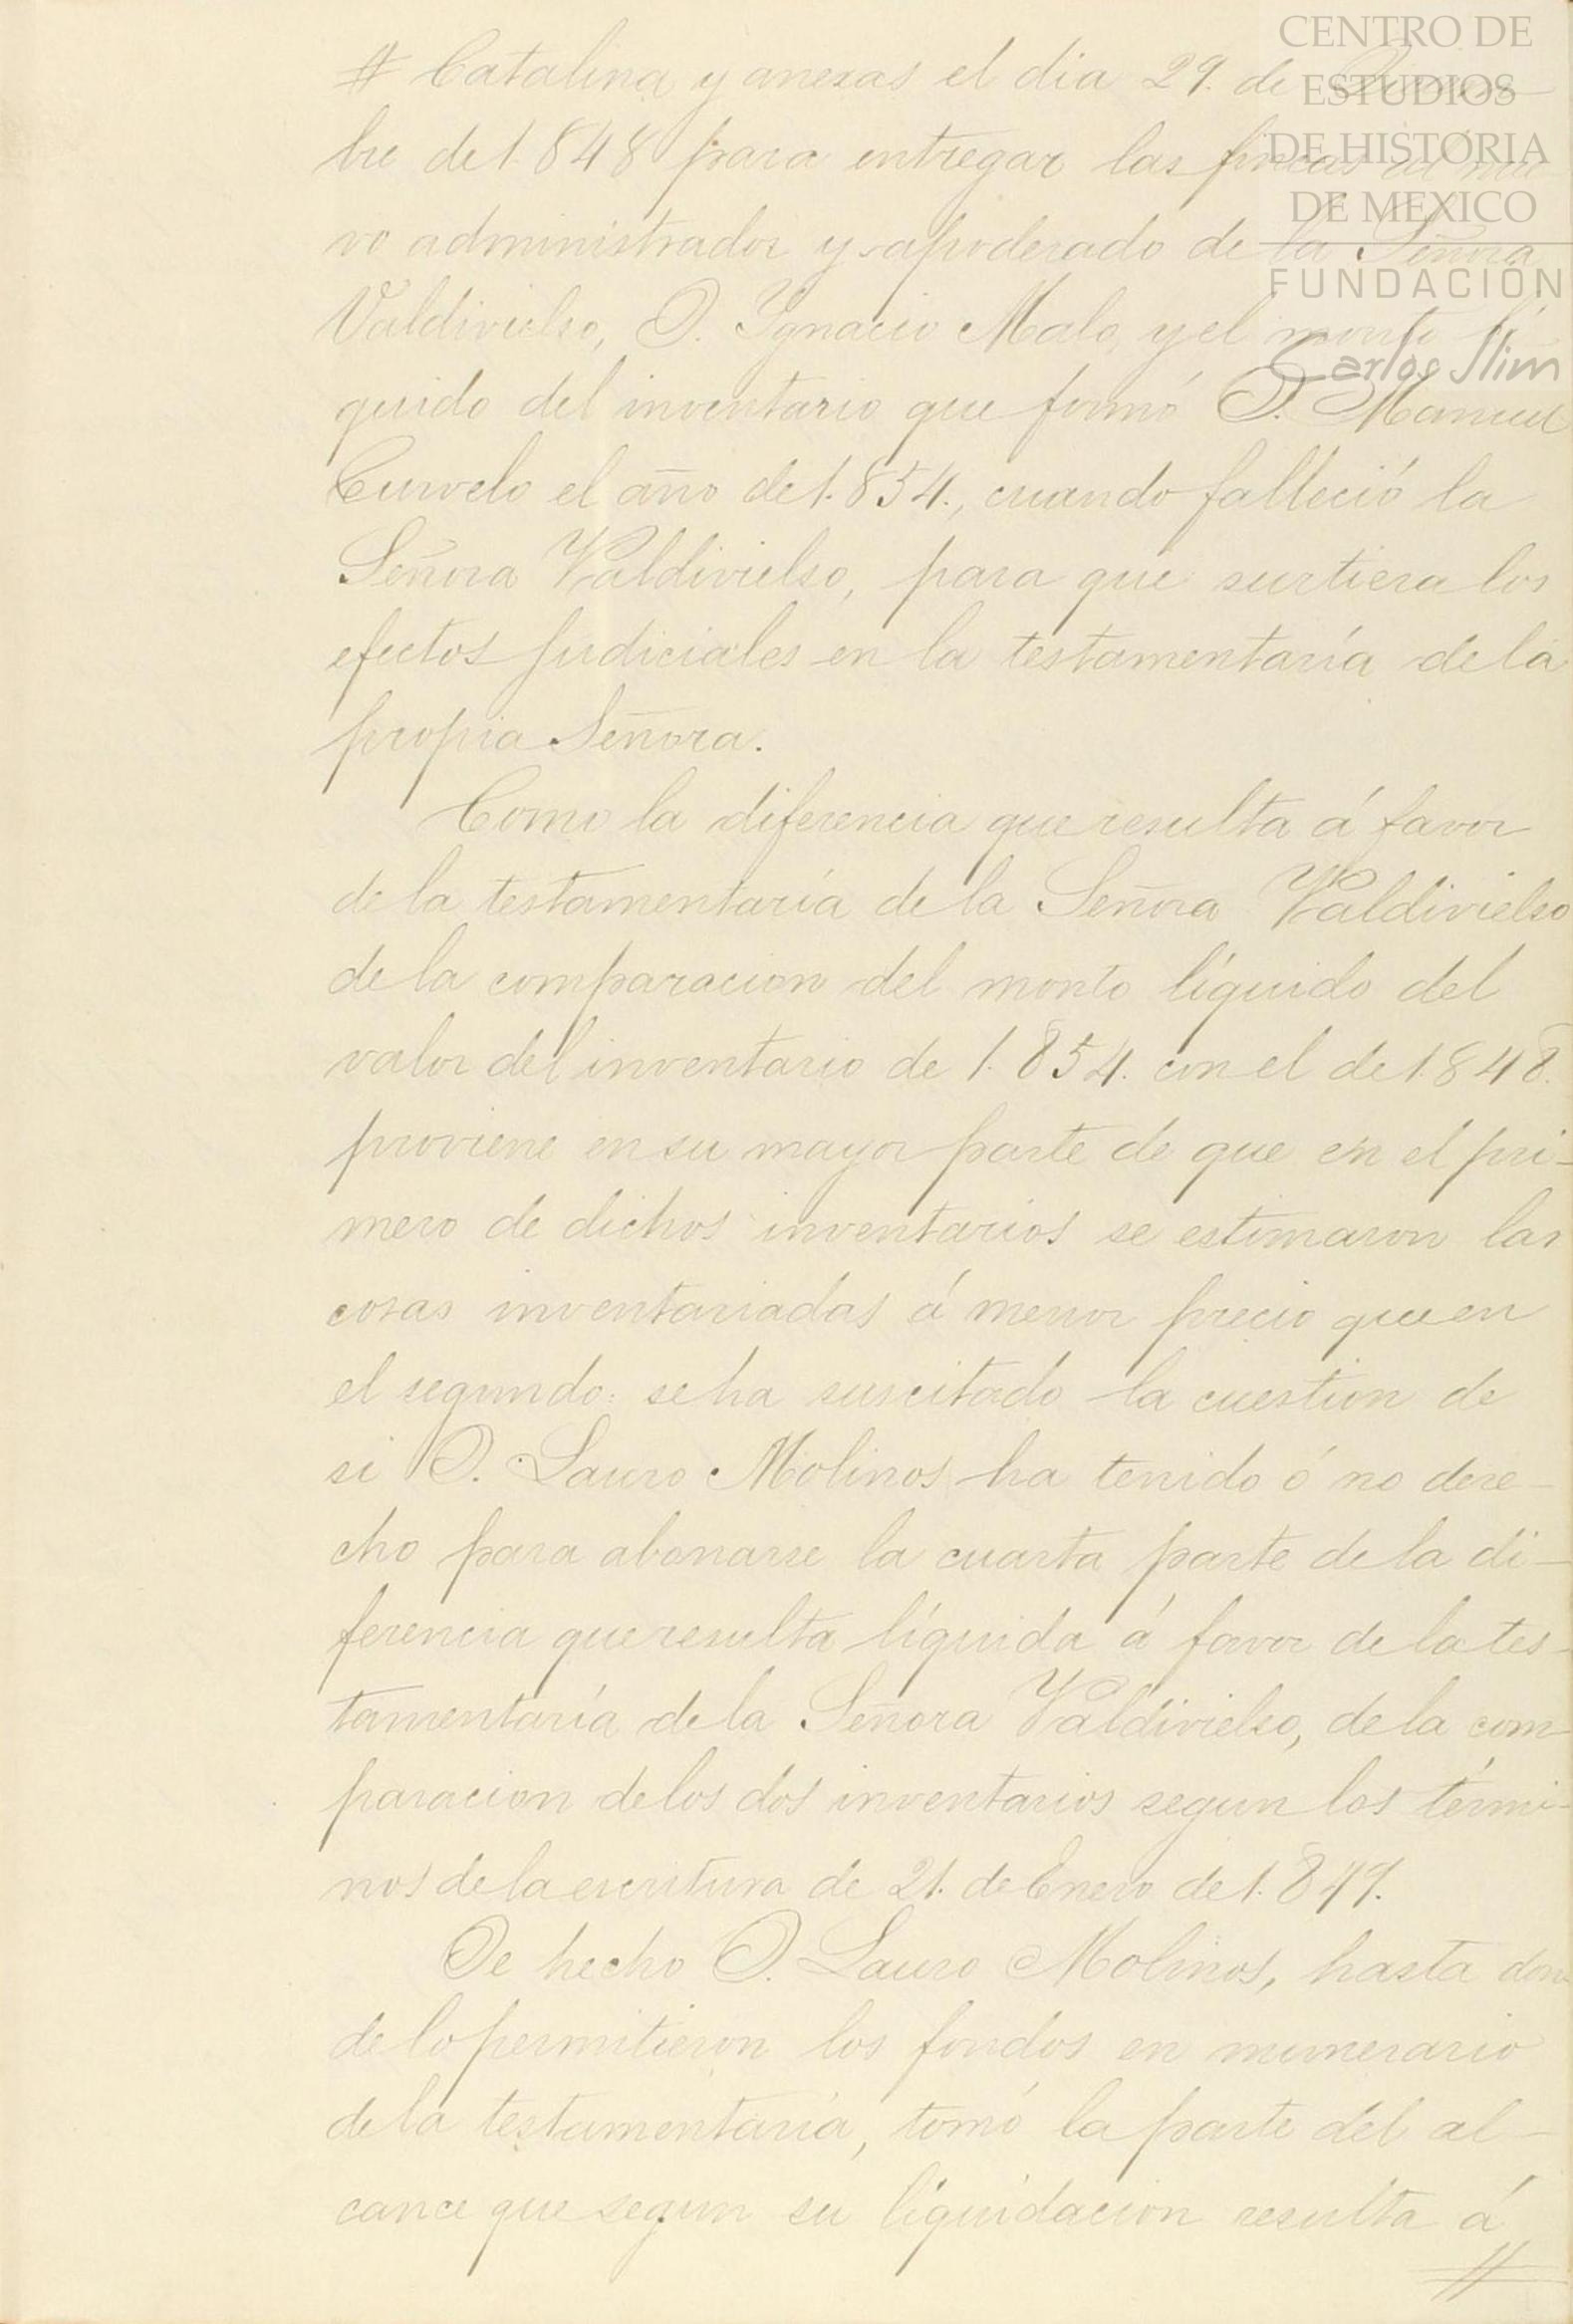 # Catalina y anexas el dia 29. de Diciem-
bre de 1.848 para entregar las fincas al nue-
vo administrador y apoderado de la Señora
Valdivielso, D. Ygnacio Malo, y el monto lí-
quido del inventario que formó D. Manuel
Curvelo el año de 1.854., cuando falleció la
Señora Valdivielso, para que surtiera los
efectos judiciales en la testamentaría de la
propia Señora.
Como la diferencia que resulta á favor
de la testamentaría de la Señora Valdivielso
de la comparacion del monto líquido del
valor del inventario de 1.854. con el de 1.848.
proviene en su mayor parte de que en el pri-
mero de dichos inventarios se estimaron las
cosas inventariadas á menor precio que en
el segundo: se ha suscitado la cuestion de
si D. Lauro Molinos ha tenido ó no dere-
cho para abonarse la cuarta parte de la di-
ferencia que resulta líquida á favor de la tes-
tamentaría de la Señora Valdivielso, de la com-
paracion de los dos inventarios segun los térmi-
nos de la escritura de 21. de Enero de 1.849.
De hecho D. Lauro Molinos, hasta don-
de lo permitieron los fondos en numerario
de la testamentaría, tomó la parte del al-
cance que segun su liquidacion resulta á
#
CENTRO DE
ESTUDIOS
DE HISTORIA
DE MEXICO
FUNDACIÓN
Carlos Slim